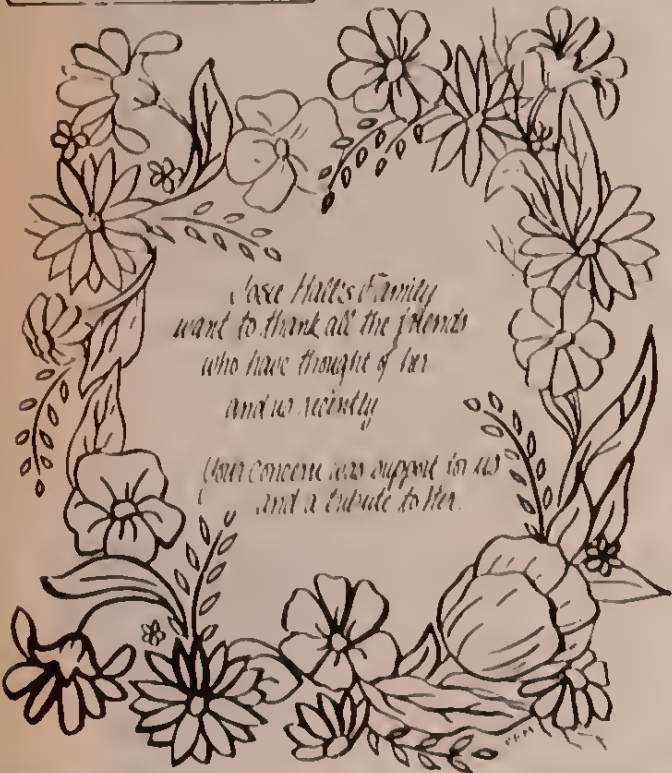 Josie Hales Family
want to thank all the friends
who have thought of her
and us recently
Your concern was support for us
and a tribute to Her.